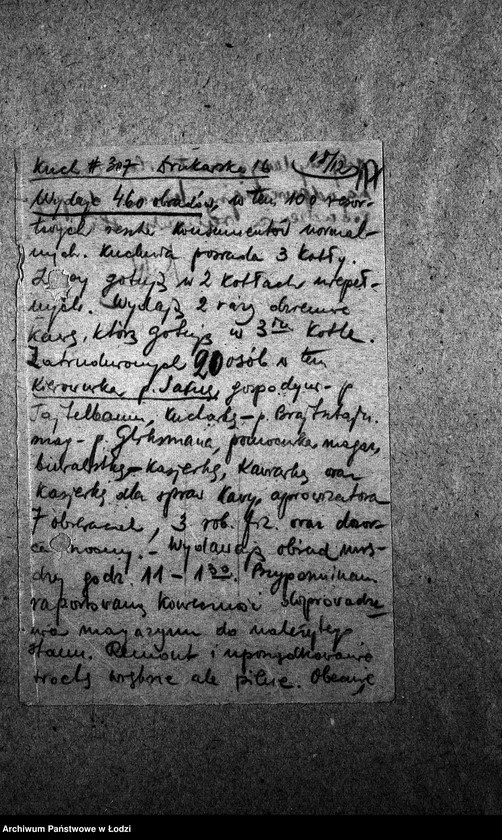 Kuch # 307 Drukarska 16 15/12
Wydaje 460 obiadów, w tem 100
reszta konsumentów normal-
nych. Kuchnia posiada 3 kotły.
gotują w 2 kotłach niepeł-
nych. Wydają 2 razy dziennie
kawę, którą gotują w 3im kotle.
Zatrudnionych 20 osób w tem
kierownika p. gospodyni - p.
Tajtelbaum, kucharkę - p.
mag - p. Gliksmana, pomocnika magaz.
biuralistkę - kasjerkę, kawiarkę oraz
kasjerkę dla spraw kawy, aprowizatora
7 obieraczek, 3 rob. fiz. oraz dozor-
cę nocny. - Wydawają obiad mię-
dzy godz. 11 - 1 30. Przypominam
raportowaną konieczność doprowadze-
nia magazynu do należytego
stanu. Remont i uporządkowanie
trochę większe ale pilne. Obecnie